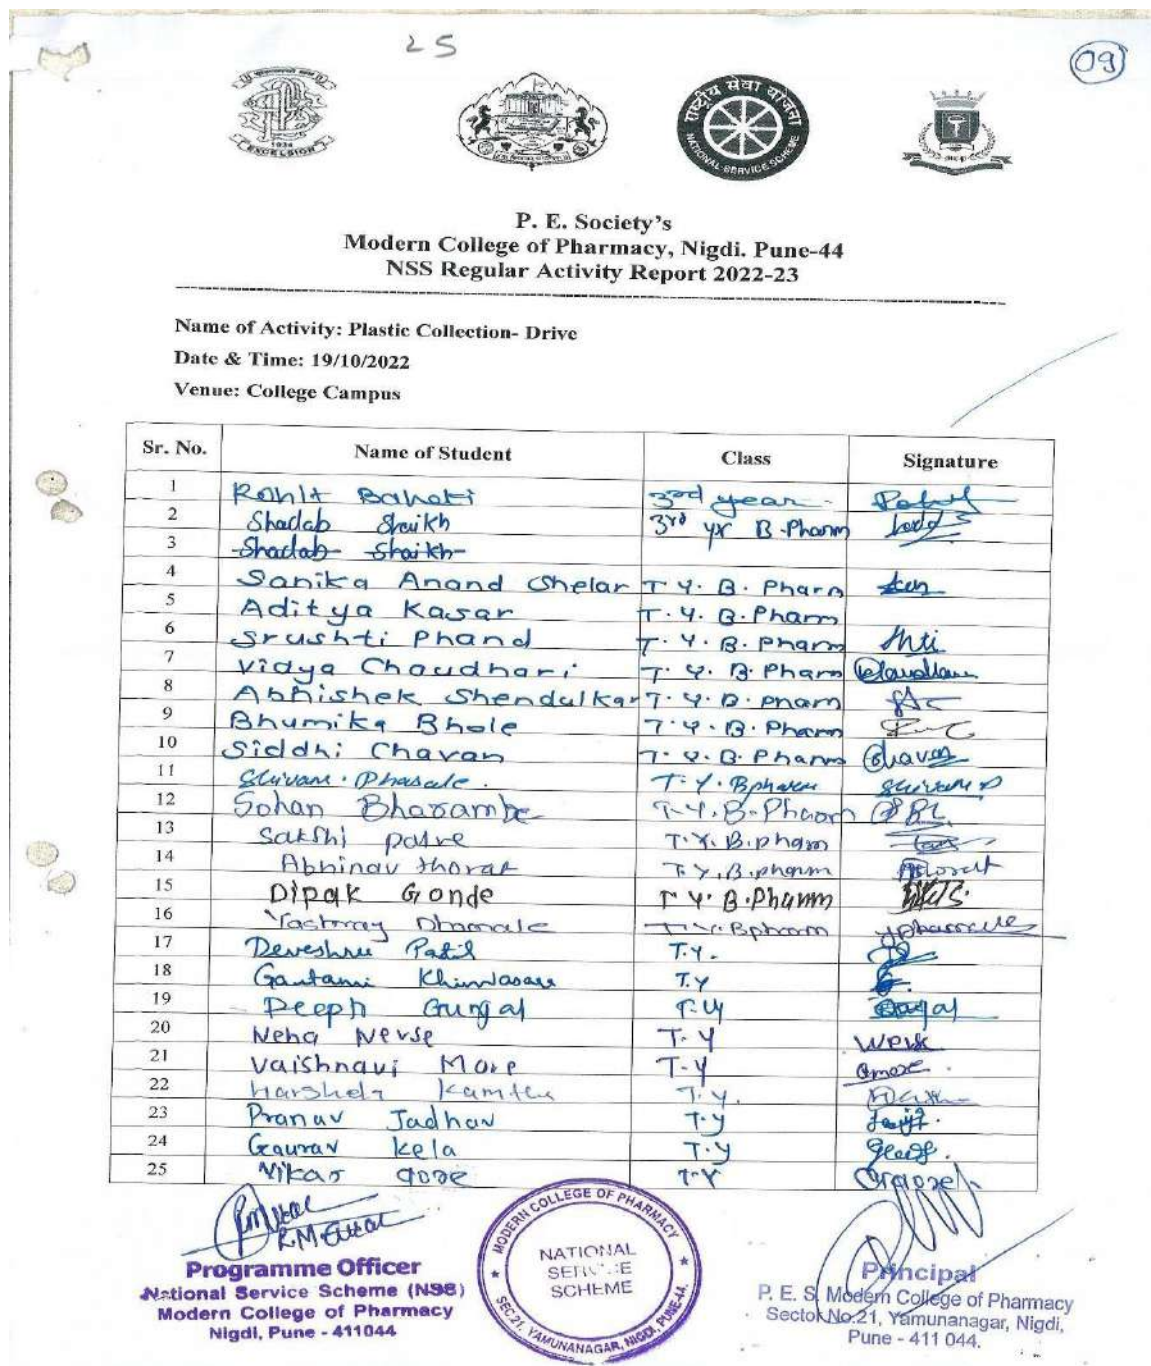 25
09
1934
EXCELSIOR
राष्ट्रीय सेवा योजना
NATIONAL SERVICE SCHEME
P. E. Society's
Modern College of Pharmacy, Nigdi. Pune-44
NSS Regular Activity Report 2022-23
Name of Activity: Plastic Collection- Drive
Date & Time: 19/10/2022
Venue: College Campus
Sr. No. Name of Student Class Signature
1 Rohit Baheti 3rd year
2 Shadab Shaikh 3rd yr B.Pharm
3 Shadab Shaikh
4 Sanika Anand Shelar T Y. B. Pharm
5 Aditya Kasar T.Y. B.Pharm
6 Srushti Phand T.Y.B.Pharm
7 Vidya Chaudhari T.Y.B.Pharm
8 Abhishek Shendulkar T.Y.B.Pharm
9 Bhumika Bhole T.Y.B.Pharm
10 Siddhi Chavan T.Y.B.Pharm Chavan
11 Shivani. Phasale. T.Y.Bpharm
12 Sohan Bharambe T.Y.B.Pharm
13 Sakshi T.Y.B.pharm
14 Abhinav thorat T.Y.B.pharm
15 Dipak Gonde T Y. B.Pharm
16 T.Y.Bpharm
17 Deveshree Patil T.Y.
18 Gautami T.Y
19 T.Y
20 Neha Nevse T.Y
21 Vaishnavi More T.Y
22 T.Y.
23 Pranav Jadhav T.Y
24 Gaurav Kela T.Y
25 T.Y
Programme Officer
National Service Scheme (NSS)
Modern College of Pharmacy
Nigdi, Pune - 411044
MODERN COLLEGE OF PHARMACY
NATIONAL
SERVICE
SCHEME
SEC.21, YAMUNANAGAR, NIGDI, PUNE-44.
Principal
P. E. S. Modern College of Pharmacy
Sector No.21, Yamunanagar, Nigdi,
Pune - 411 044.